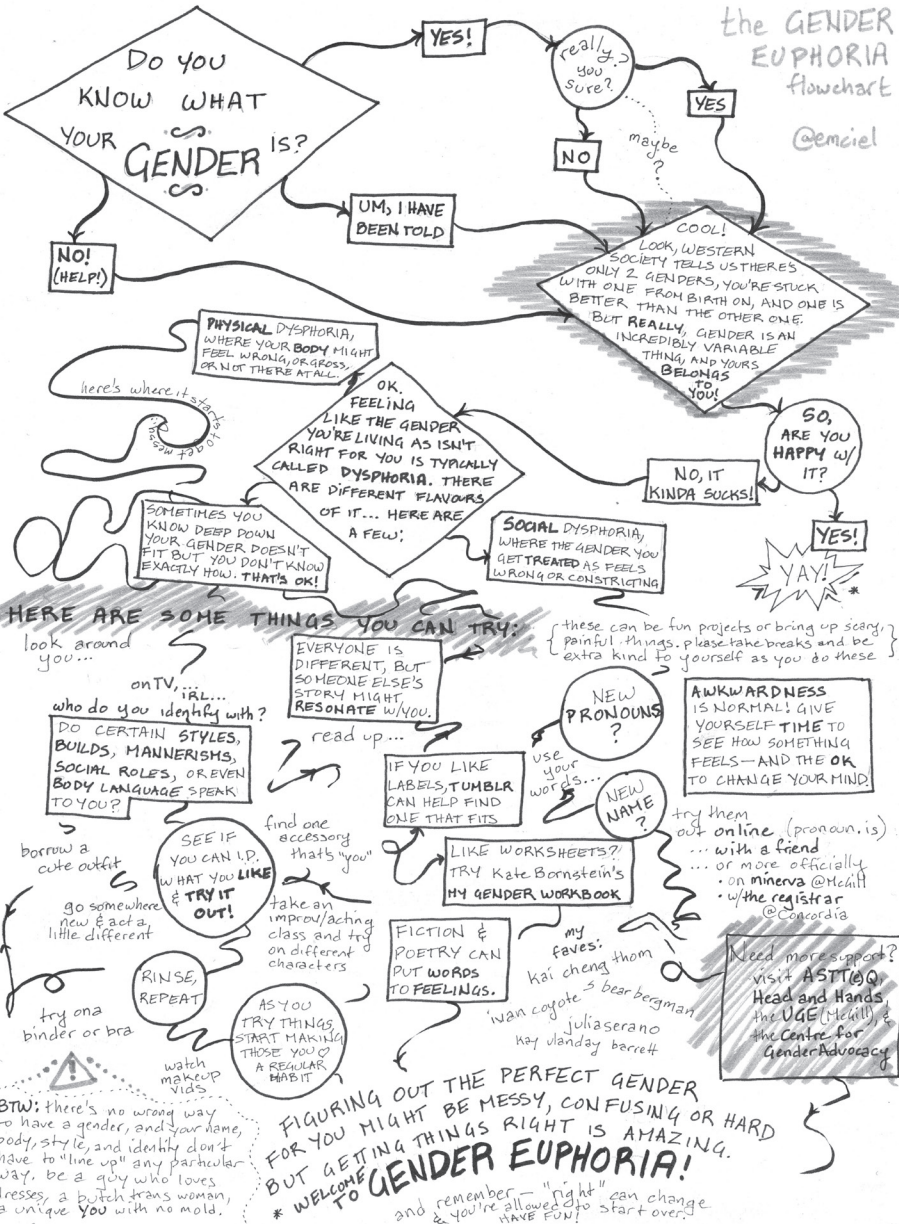 the GENDER
EUPHORIA
flowchart
@emciel
DO YOU
KNOW WHAT
YOUR GENDER IS?
YES!
really?
you
sure?
YES
NO
maybe
?
UM, I HAVE
BEEN TOLD
NO!
(HELP!)
COOL!
LOOK, WESTERN
SOCIETY TELLS US THERE'S
ONLY 2 GENDERS, YOU'RE STUCK
WITH ONE FROM BIRTH ON, AND ONE IS
BETTER THAN THE OTHER ONE.
BUT REALLY, GENDER IS AN
INCREDIBLY VARIABLE
THING, AND YOURS
BELONGS
TO
YOU!
SO,
ARE YOU
HAPPY W/
IT?
NO, IT
KINDA SUCKS!
YES!
YAY!
*
OK.
FEELING
LIKE THE GENDER
YOU'RE LIVING AS ISN'T
RIGHT FOR YOU IS TYPICALLY
CALLED DYSPHORIA. THERE
ARE DIFFERENT FLAVOURS
OF IT... HERE ARE
A FEW:
PHYSICAL DYSPHORIA,
WHERE YOUR BODY MIGHT
FEEL WRONG, OR GROSS,
OR NOT THERE AT ALL.
here's where it starts to get messy!
SOMETIMES YOU
KNOW DEEP DOWN
YOUR GENDER DOESN'T
FIT BUT YOU DON'T KNOW
EXACTLY HOW. THAT'S OK!
SOCIAL DYSPHORIA,
WHERE THE GENDER YOU
GET TREATED AS FEELS
WRONG OR CONSTRICTING
HERE ARE SOME THINGS YOU CAN TRY:
{these can be fun projects or bring up scary,
painful things. please take breaks and be
extra kind to yourself as you do these}
look around
you...
on TV,...
IRL...
who do you identify with?
DO CERTAIN STYLES,
BUILDS, MANNERISMS,
SOCIAL ROLES, OR EVEN
BODY LANGUAGE SPEAK
TO YOU?
EVERYONE IS
DIFFERENT, BUT
SOMEONE ELSE'S
STORY MIGHT
RESONATE W/YOU.
read up...
IF YOU LIKE
LABELS, TUMBLR
CAN HELP FIND
ONE THAT FITS
LIKE WORKSHEETS?
TRY Kate Bornstein's
MY GENDER WORKBOOK
FICTION &
POETRY CAN
PUT WORDS
TO FEELINGS.
my
faves:
kai cheng thom
ivan coyote
s bear bergman
julia serano
kay ulanday barrett
NEW
PRONOUNS
?
use
your
words...
NEW
NAME
?
AWKWARDNESS
IS NORMAL! GIVE
YOURSELF TIME TO
SEE HOW SOMETHING
FEELS—AND THE OK
TO CHANGE YOUR MIND
try them
out online (pronoun.is)
... with a friend
... or more officially
• on minerva @McGill
• w/the registrar
@Concordia
Need more support?
visit ASTT(e)Q,
Head and Hands,
the UGE (McGill), &
the Centre for
Gender Advocacy
borrow a
cute outfit
go somewhere
new & act a
little different
SEE IF
YOU CAN I.D.
WHAT YOU LIKE
& TRY IT
OUT!
find one
accessory
that's "you"
take an
improv/acting
class and try
on different
characters
RINSE,
REPEAT
try on a
binder or bra
watch
makeup
vids
AS YOU
TRY THINGS,
START MAKING
THOSE YOU ♡
A REGULAR
HABIT
!
BTW: there's no wrong way
to have a gender, and your name,
body, style, and identity don't
have to "line up" any particular
way. be a guy who loves
dresses, a butch trans woman,
a unique YOU with no mold.
FIGURING OUT THE PERFECT GENDER
FOR YOU MIGHT BE MESSY, CONFUSING OR HARD
BUT GETTING THINGS RIGHT IS AMAZING.
* WELCOME
TO GENDER EUPHORIA!
and remember — "right" can change
& you're allowed to start over.
HAVE FUN!